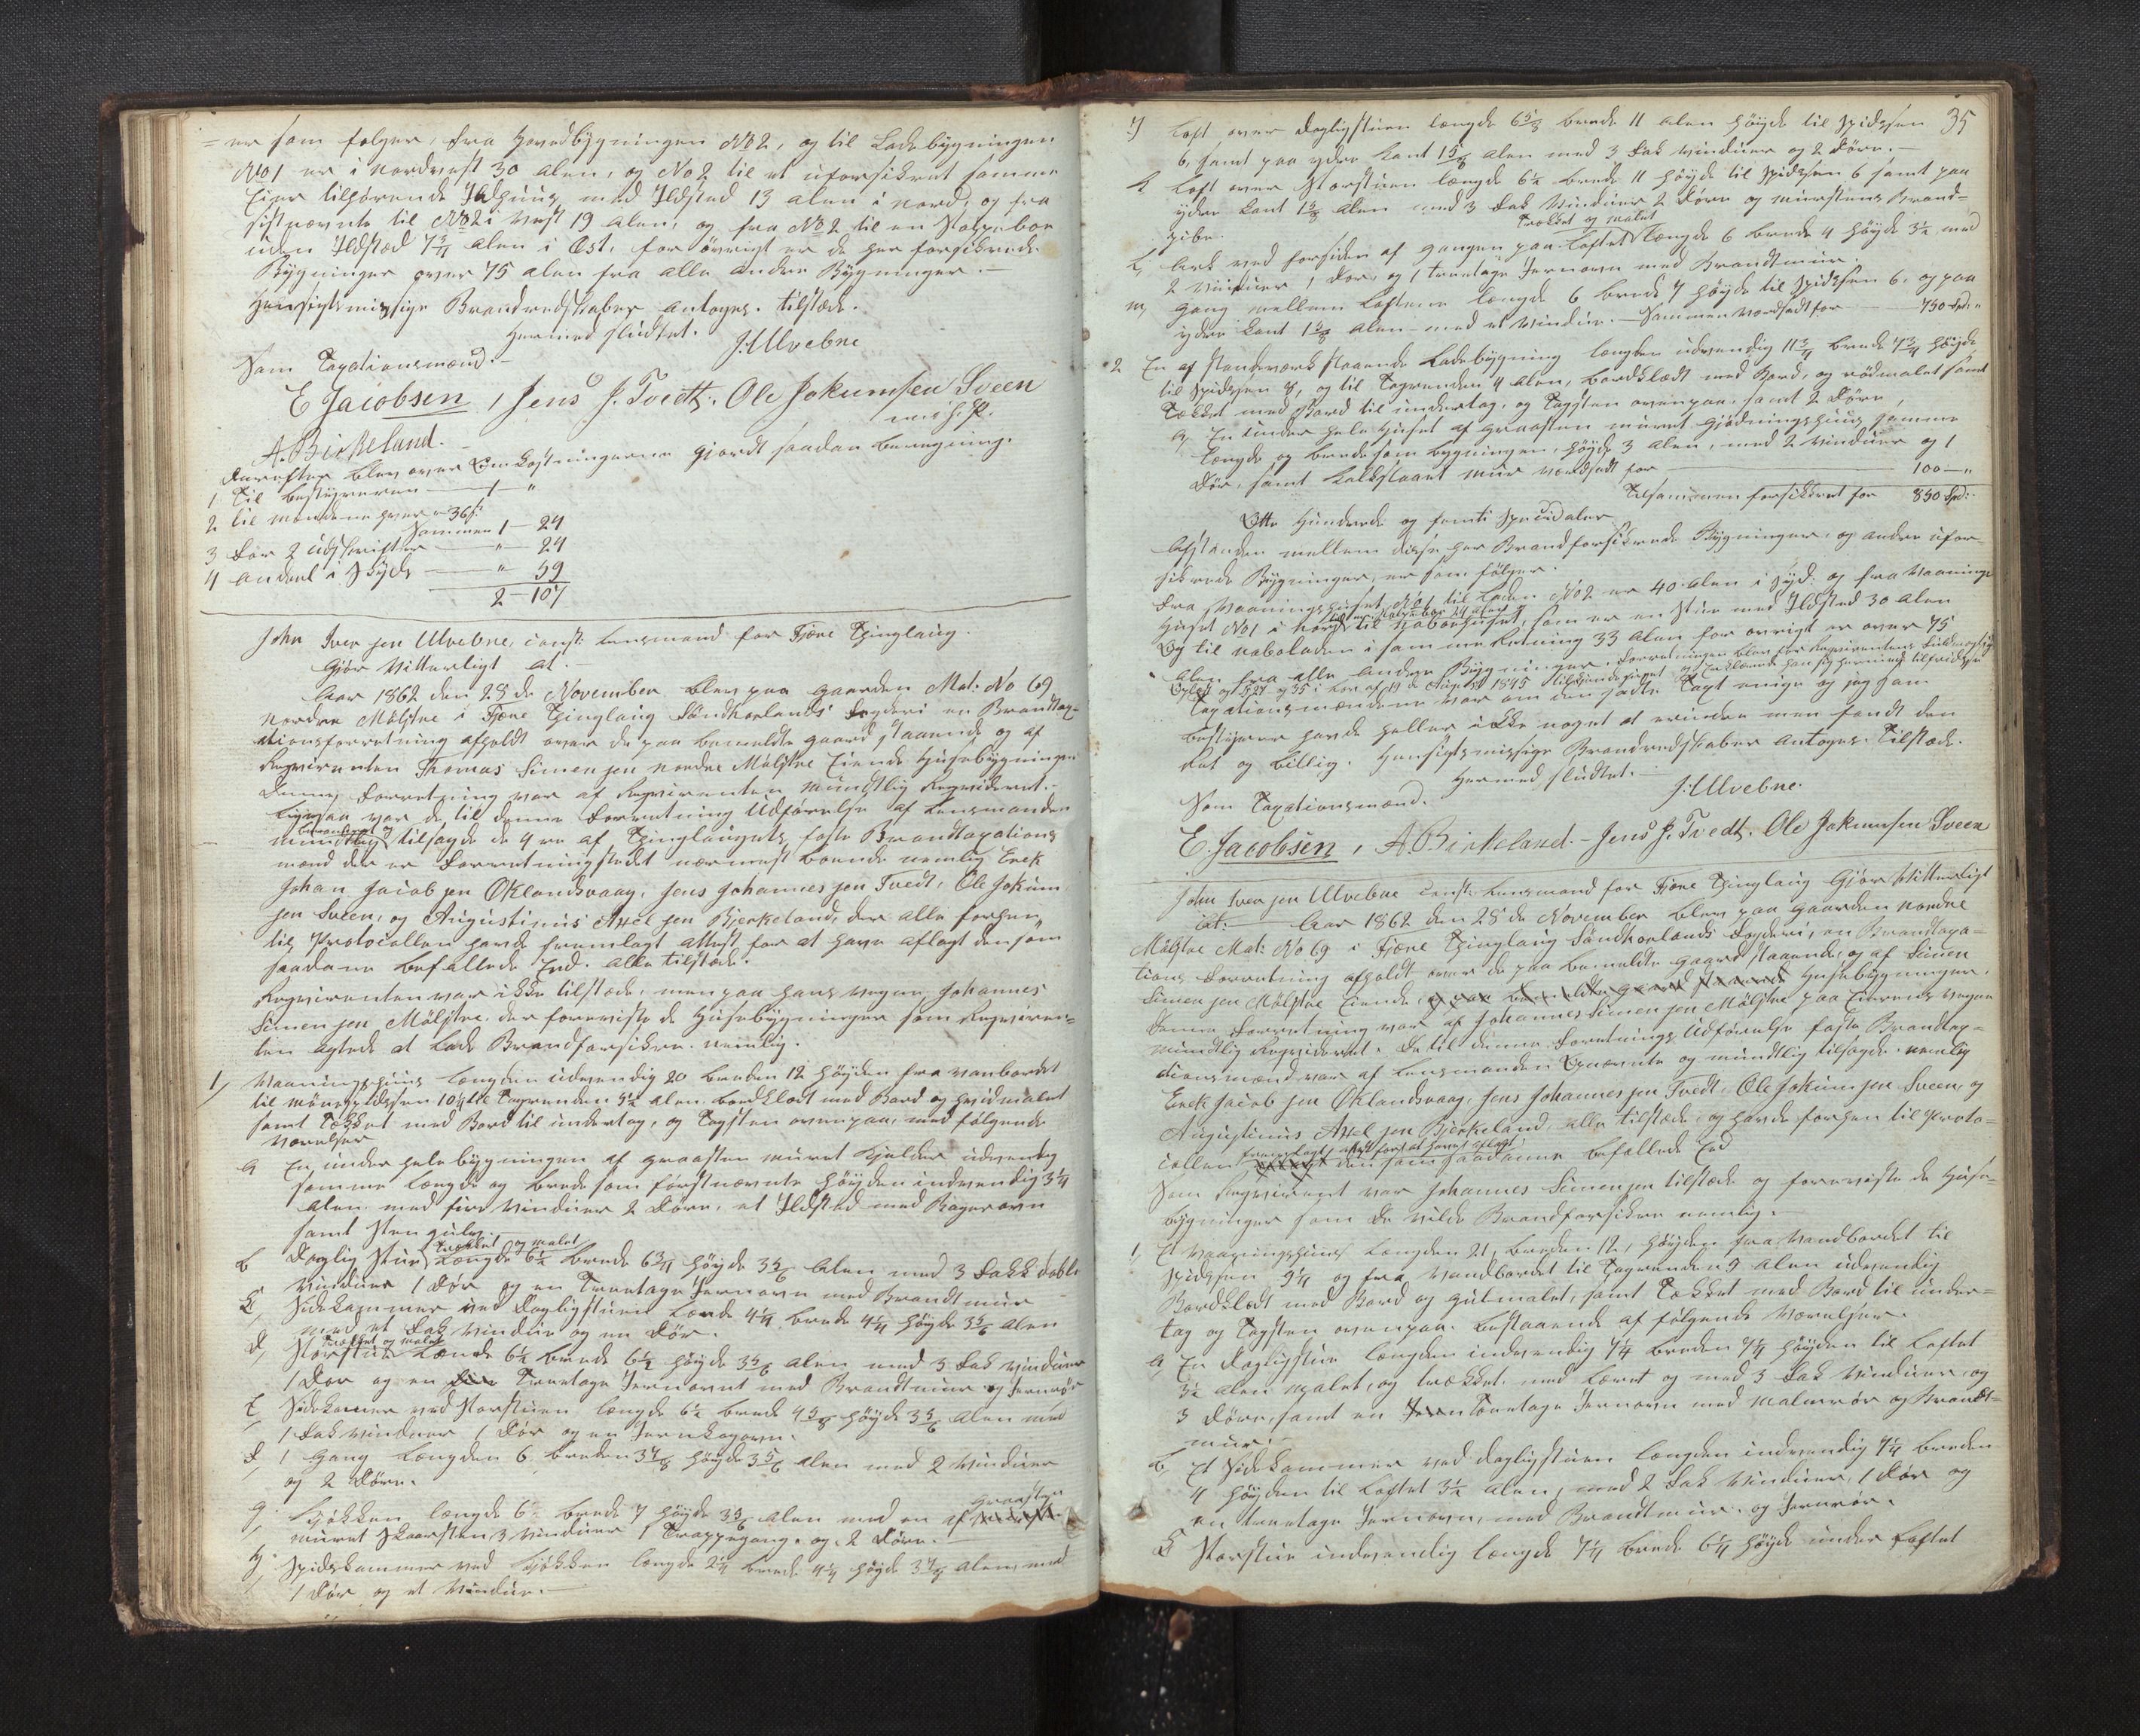 = er som følger, fra Hovedbygningen No 2, og til Ladebygningen
No 1 er i nordvest 30 alen, og No 2 til et uforsikret samme
Eier tilhørende Ildhuus med Ildsted 13 alen i nord, og fra
sistnævnte til No 2 i vest 19 alen, og fra No 2 til en Stolpebod
uden Ildsted 7 3/4 alen i Øst, for övrigt er de her forsikrede
Bygninger over 75 alen fra alle andre Bygninger. —
Hensigtsmæssige Brandredskaber antoges tilstæde.
Hermed sluttet. J. Ulvebne
Som Taxationsmænd. —
E Jacobsen, Jens J. Tvedt. Ole Jokumsen Sveen
A. Birkeland.
Derefter blev over Omkostningerne gjordt saadan beregning.
1 Til bestyreren — 1 "
2 til mændene hver 36 s:
Sammen 1 — 24
3 For 2 udskrifter — " — 24
4 andeel i Skyds — " — 59
2 — 107
John Iversen Ulvebne, const: Lensmand for Fjære Thinglaug
Gjør Vitterligt at. —
Aar 1862 den 28de November blev paa gaarden Mat: No 69
nordre Mälstre i Fjære Thinglaug Söndhorlands Fogderi en Brandtax-
ationsforretning afholdt over de paa bemeldte gaard staaende og af
Reqvirenten Thomas Simensen nordre Mälstre Eiende Husebygninger
Denne Forretning var af Reqvirenten mundtlig Reqvideret. —
Ligesaa var de til denne Forretnings Udförelse af Lensmanden
mundtlig tilsagde de 4re af Thinglaugets faste Brandtaxations
mænd der er Forretningstedet nærmest boende nemlig Erek
Johan Jacobsen Øklandsvaag, Jens Johannessen Tvedt, Ole Jokum-
sen Sveen, og Augustinus Axelsen Bjerkeland, der alle forhen
til Protocollen havde fremlagt attest for at have aflagt den som
saadanne befallede Eed. alle tilstæde.
Reqvirenten var ikke tilstæde, men paa hans vegne Johannes
Simensen Mälstre der foreviste de Husebygninger som Reqviren-
ten agtede at lade Brandforsikre. nemlig.
1, Vaaningshuus længden udvendig 20 breden 12 höyden fra vanbordet
til mönespidsen 10 1/4 til Tagrenden 5 1/2 alen, bordklædt med Bord og hvidmalet
samt Tækket med Bord til undertag, og Tagsten ovenpaa, med fölgende
Værelser
a En under hele bygningen af graasten muret Kjelder udvendig
samme længde og brede som förstnævnte höyden indvendig 3 1/4
alen med fire Vinduer 2 Döre, et Ildsted med Bagerovn
samt Sten gulv.
trækket og malet
b Daglig Stue længde 6 1/2 brede 6 3/4 höyde 3 5/6 alen med 3 Fakk doble
Vinduer 1 Dör og en Treetages Jernovn med Brandtmuur
C, Sidekammer ved Dagligstuen længde 4 1/4 brede 4 1/4 höyde 3 5/6 alen
med et Fak Vindue og en Dör.
trækket og malet
d, Storstue længde 6 1/2 brede 6 1/2 höyde 3 5/6 alen med 3 Fak Vinduer
1 Dör og en Treetages Jernovnt med Brandtmuur og Jernrör
E, Sidekamer ved Storstuen længde 6 1/2 brede 4 5/8 höyde 3 5/6 alen med
1 Fak Vinduer 1 Dör og en Jernkagovn.
F, 1 Gang længden 6 breden 3 7/8 höyde 3 5/6 alen med 2 Vinduer
og 2 Döre.
g, Kjökken længde 6 1/2 brede 7 höyde 3 5/6 alen med en af Graasteen
muret Skorsten 3 Vinduer 1 Trappegang og 2 Döre.
H, Spidskammer ved Kjökken længde 2 1/4 brede 4 1/4 höyde 3 7/8 alen, med
1 Dör og et Vindue. —
35
J Loft over Dagligstuen længde 6 5/8 brede 11 alen höyde til Spidsen
6, samt paa ydre kant 1 5/8 alen med 3 Fak Vinduer og 2 Döre. —
K Loft over Storstuen længde 6 1/2 brede 11 höyde til Spidsen 6 samt paa
ydre kant 1 5/8 alen med 3 Fak Vinduer 2 Döre og muurstens Brand-
pibe.
trækket og malet
L, Ark ved forsiden af gangen paa Loftet længde 6 brede 4 höyde 3 1/2 med
2 Vinduer 1 Dör og 1 treetages Jernovn med Brandtmuur.
m, Gang mellem Lofterne længde 6 brede 7 höyde til Spidsen 6, og paa
ydre kant 1 5/8 alen med et Vindue. — Sammen værdsadt for — 750 Spd: "
2 En af Standværk staaende Ladebygning længden udvendig 11 3/4 brede 7 3/4 höyde
til Spidsen 8, og til Tagrenden 4 alen, bordklædt med Bord, og rödmalet samt
Tækket med Bord til undertag, og Tagsten ovenpaa, samt 2 Döre,
a, En under hele huset af graasten muret gjödningshuus samme
Længde og brede som bygningen, höyde 3 alen, med 2 vinduer og 1
Dör, samt kalkslaaet muur værdsadt for — 100 — "
Tilsammen forsikkret for 850 Spd:
Otte Hundrede og femti Speciedaler
Afstanden mellem disse her Brandforsikrede Bygninger, og andre ufor-
sikrede Bygninger, er som fölger.
Fra Vaaningshuset No 1 til Laden No 2 er 40 alen i Syd: og fra Vaanings
Huset No 1 i nord til som er en Stue med Ildsted 30 alen
Og til nabolladen i samme Retning 33 alen for övrigt er over 75
alen fra alle andre Bygninger. Forretningen blev for Reqvirentens Fuldmægtig
Oplæst og § 27 og 35 i Lov af 19de August 1845 tilkjendegivet og Erklærede han sig hermed tilfreds
Taxationsmændene var om den sadte Taxt enige og jeg som
bestyrer havde heller ikke noget at erindre men fandt den
Ret og billig. Hensigtsmæssige Brandredskaber antoges tilstæde.
Hermed sluttet. —
Som Taxationsmænd. J. Ulvebne.
E. Jacobsen, A. Birkeland. Jens J. Tvedt. Ole Jokumsen Sveen
John Iversen Ulvebne Const: Lensmand for Fjære Thinglaug Gjör Vitterligt
At: — Aar 1862 den 28de November blev paa gaarden nordre
Mälstre Mat: No 69 i Fjære Thinglaug Söndhorlands Fogderi, en Brandtaxa-
tions Forretning afholdt over de paa bemeldte gaard staaende, og af Simen
Simensen Mälstre Eiende Husebygninger.
Denne Forretning var af Johannes Simensen Mälstre paa Eierens vegne
mundtlig Reqvideret. De til denne Forretnings Udförelse faste Brandtax-
ationsmænd var af Lensmanden Opnævnte og mundtlig tilsagde. nemlig
Erek Jacobsen Øklandsvaag, Jens Johannessen Tvedt, Ole Jokumsen Sveen, og
Augustinus Axelsen Bjerkeland. alle tilstæde, og havde forhen til Proto-
fremlagt attest for at have aflagt
collen den som saadanne befallede Eed
Som Reqvirent var Johannes Simensen tilstæde og foreviste de Huse-
bygninger som de vilde Brandforsikre nemlig.
1, Et Vaaningshuus længden 21, breden 12, höyden fra Vandbordet til
Spidsen 9 1/4 og fra Vandbordet til Tagrenden 5 alen udvendig
Bordklædt med Bord og gulmalet, samt Tækket med Bord til under-
tag og Tagsten ovenpaa. bestaaende af fölgende Værelser.
a, En Dagligstue længden indvendig 7 1/4 breden 7 1/4 höyden til Loftet
3 1/2 alen malet, og trækket med Lærret og med 3 Fak Vinduer, og
3 Döre, samt en Treetages Jernovn med malmrör og Brandt-
muur.
b, Et Sidekammer ved Dagligstuen længden indvendig 7 1/4 breden
4 höyden til Loftet 3 1/2 alen, med 2 Fak Vinduer, 1 Dör og
en treetages Jernovn, med Brandtmuur og Jernrör.
C Storstue indvendig længde 7 1/4 brede 6 1/4 höyde under Loftet